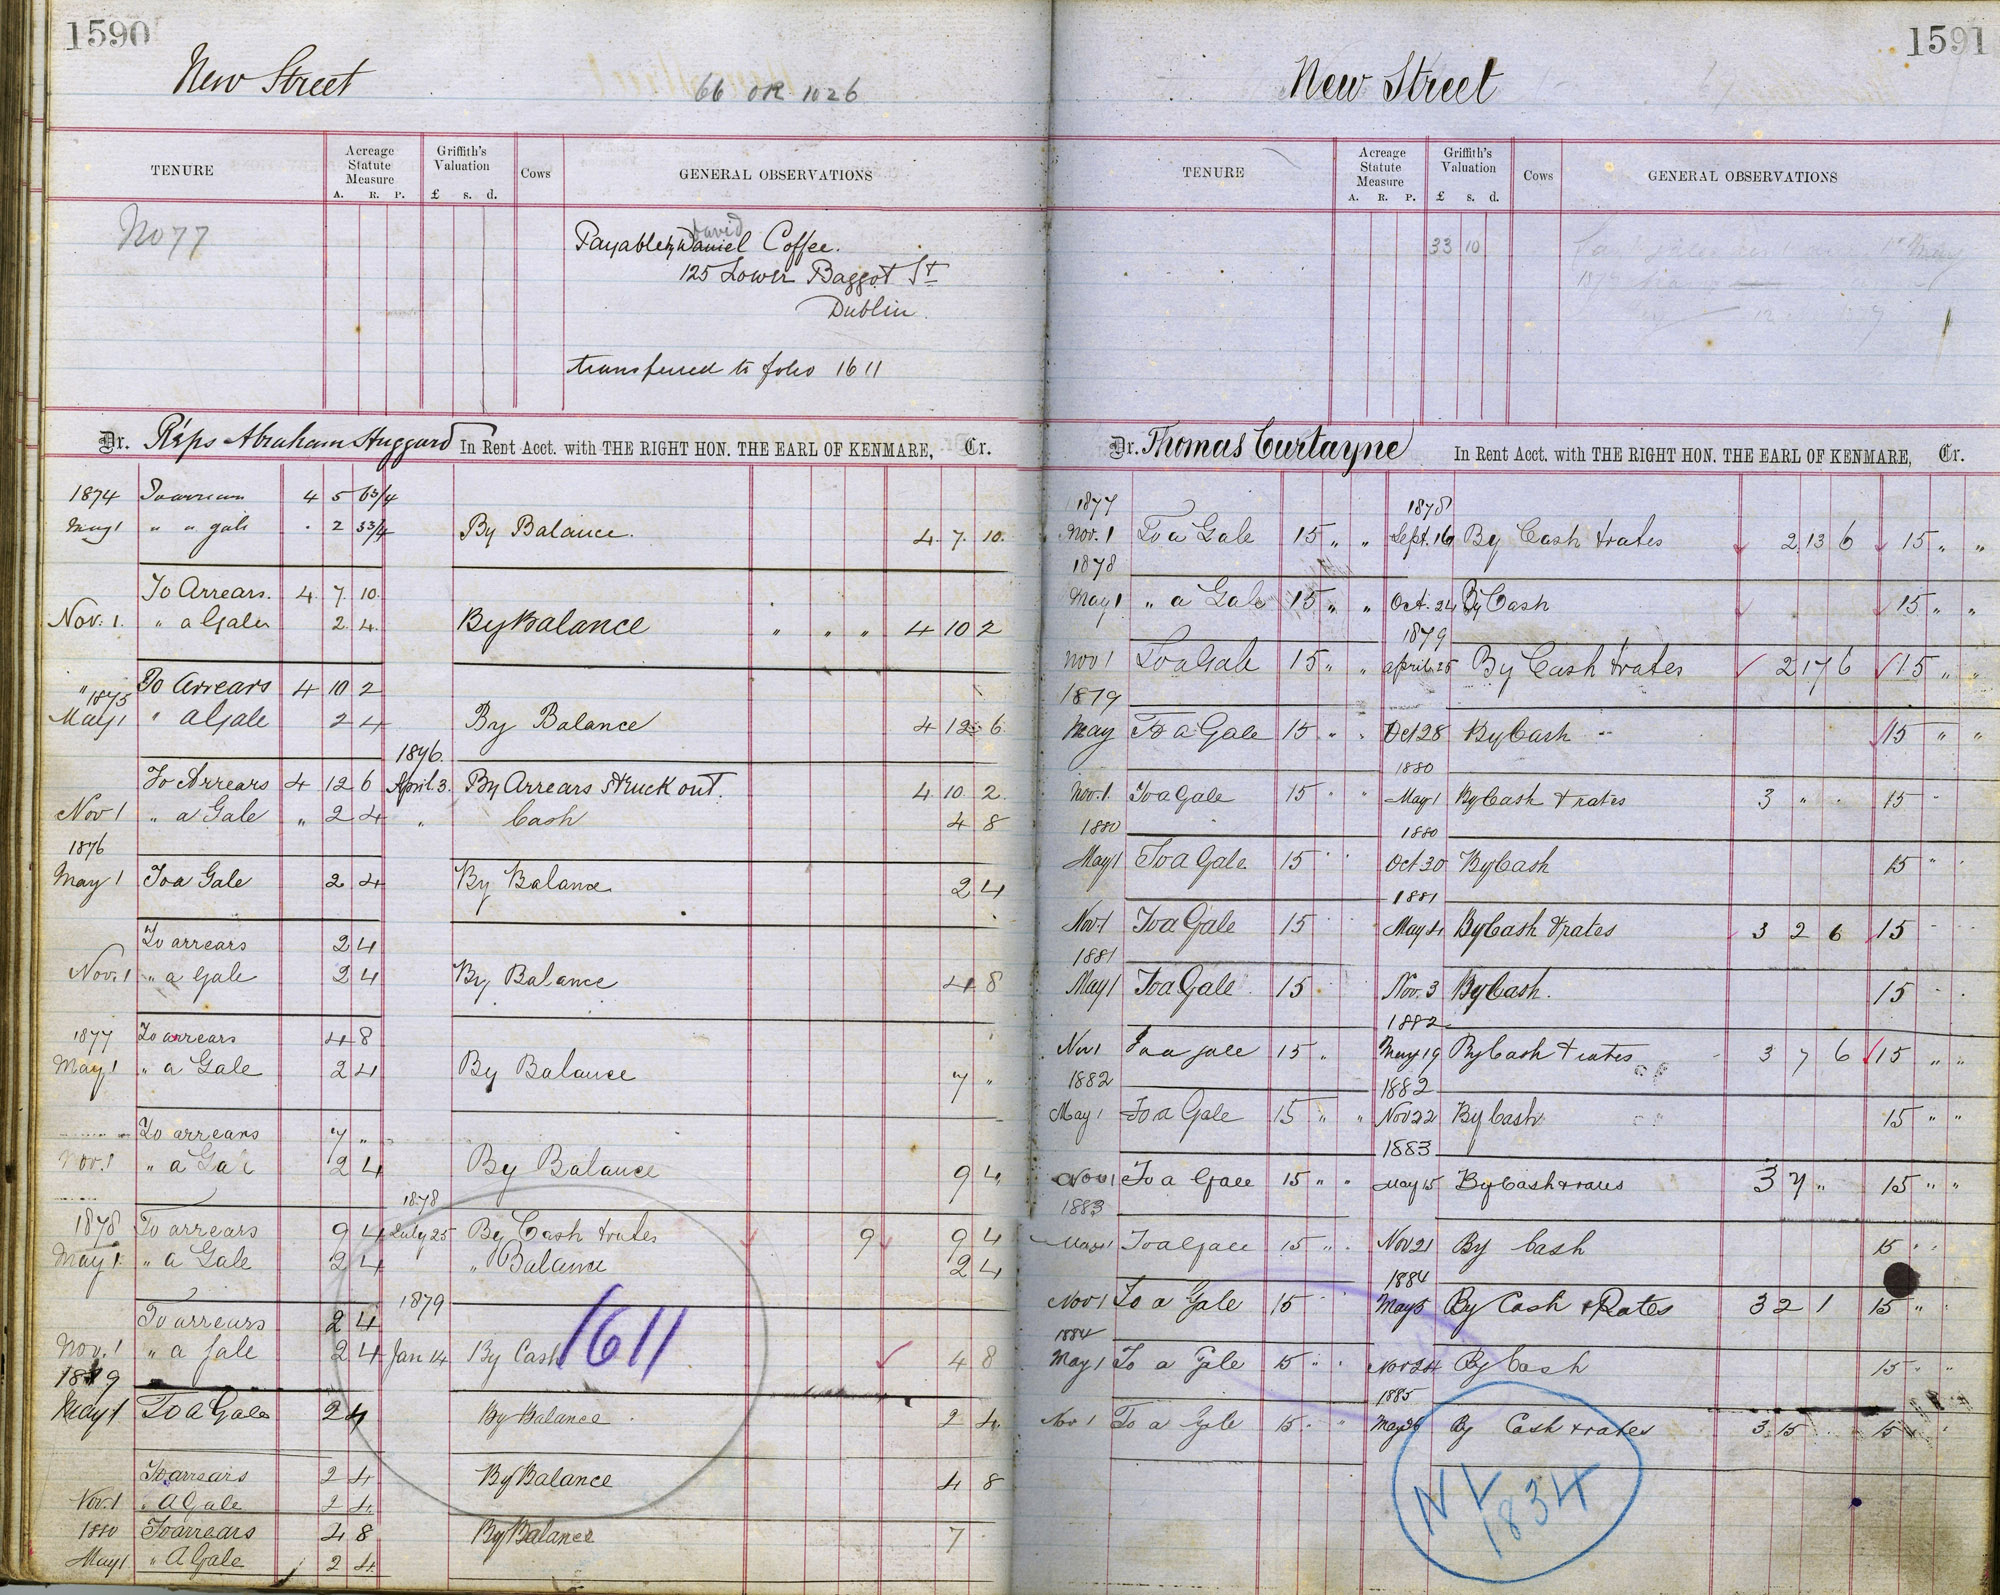 1590
New Street
66 OR 1026
TENURE
Acreage Statute Measure
A. R. P.
Griffith's Valuation
£ s. d.
Cows
GENERAL OBSERVATIONS
No 77
David
Payable by Daniel Coffee.
125 Lower Baggot St
Dublin.
transferred to folio 1611
Dr. Reps Abraham Huggard In Rent Acct. with THE RIGHT HON. THE EARL OF KENMARE, Cr.
1874 To arrears 4 5 6 3/4
May 1 " a gale . 2 3 3/4 By Balance. 4 7 10
To Arrears. 4 7 10
Nov. 1. " a Gale 2 4 By Balance " " " 4 10 2
" To Arrears 4 10 2
1875
May 1 " a Gale 2 4 By Balance 4 12 6
1876.
To Arrears 4 12 6 April 3. By Arrears Struck out. 4 10 2
Nov 1 " a Gale " 2 4 " Cash 4 8
1876
May 1 To a Gale 2 4 By Balance 2 4
To arrears 2 4
Nov. 1 " a Gale 2 4 By Balance 4 8
1877 To arrears 4 8
May 1 " a Gale 2 4 By Balance 7 "
To arrears 7 "
Nov. 1 " a Gale 2 4 By Balance 9 4
1878
1878 To arrears 9 4 July 25 By Cash & rates 9 9 4
May 1 " a Gale 2 4 " Balance 2 4
1879
To arrears 2 4
Nov. 1 " a Gale 2 4 Jan 14 By Cash 4 8
1611
1879
May 1 To a Gale 2 4 By Balance 2 4
To arrears 2 4 By Balance 4 8
Nov. 1 " A Gale 2 4
1880 To arrears 4 8 By Balance 7
May 1 " A Gale 2 4
1591
New Street
TENURE
Acreage Statute Measure
A. R. P.
Griffith's Valuation
£ s. d.
Cows
GENERAL OBSERVATIONS
33 10
Dr. Thomas Curtayne In Rent Acct. with THE RIGHT HON. THE EARL OF KENMARE, Cr.
1877 1878
Nov. 1 To a Gale 15 " " Sept. 16 By Cash & rates 2 13 6 15 " "
1878
May 1 " a Gale 15 " " Oct. 24 By Cash 15 " "
1879
Nov 1 To a Gale 15 " " April 25 By Cash & rates 2 17 6 15 " "
1879
May To a Gale 15 " " Oct 28 By Cash 15 " "
1880
Nov. 1. To a Gale 15 " " May 1 By Cash & rates 3 " " 15 "
1880 1880
May 1 To a Gale 15 " " Oct 30 By Cash 15 " "
1881
Nov. 1 To a Gale 15 May 4 By Cash & rates 3 2 6 15
1881
May 1 To a Gale 15 Nov. 3 By Cash. 15
1882
Nov 1 To a Gale 15 " May 19 By Cash & rates 3 7 6 15 " "
1882 1882
May 1 To a Gale 15 " " Nov 22 By Cash 15 " "
1883
Nov 1 To a Gale 15 " " May 15 By Cash & rates 3 7 " 15 " "
1883
May 1 To a Gale 15 " " Nov 21 By Cash 15 " "
1884
Nov 1 To a Gale 15 May 5 By Cash & Rates 3 2 1 15 "
1884
May 1 To a Gale 15 " " Nov 24 By Cash 15 "
1885
Nov 1 To a Gale 15 " " May 26 By Cash & rates 3 15 15
1834